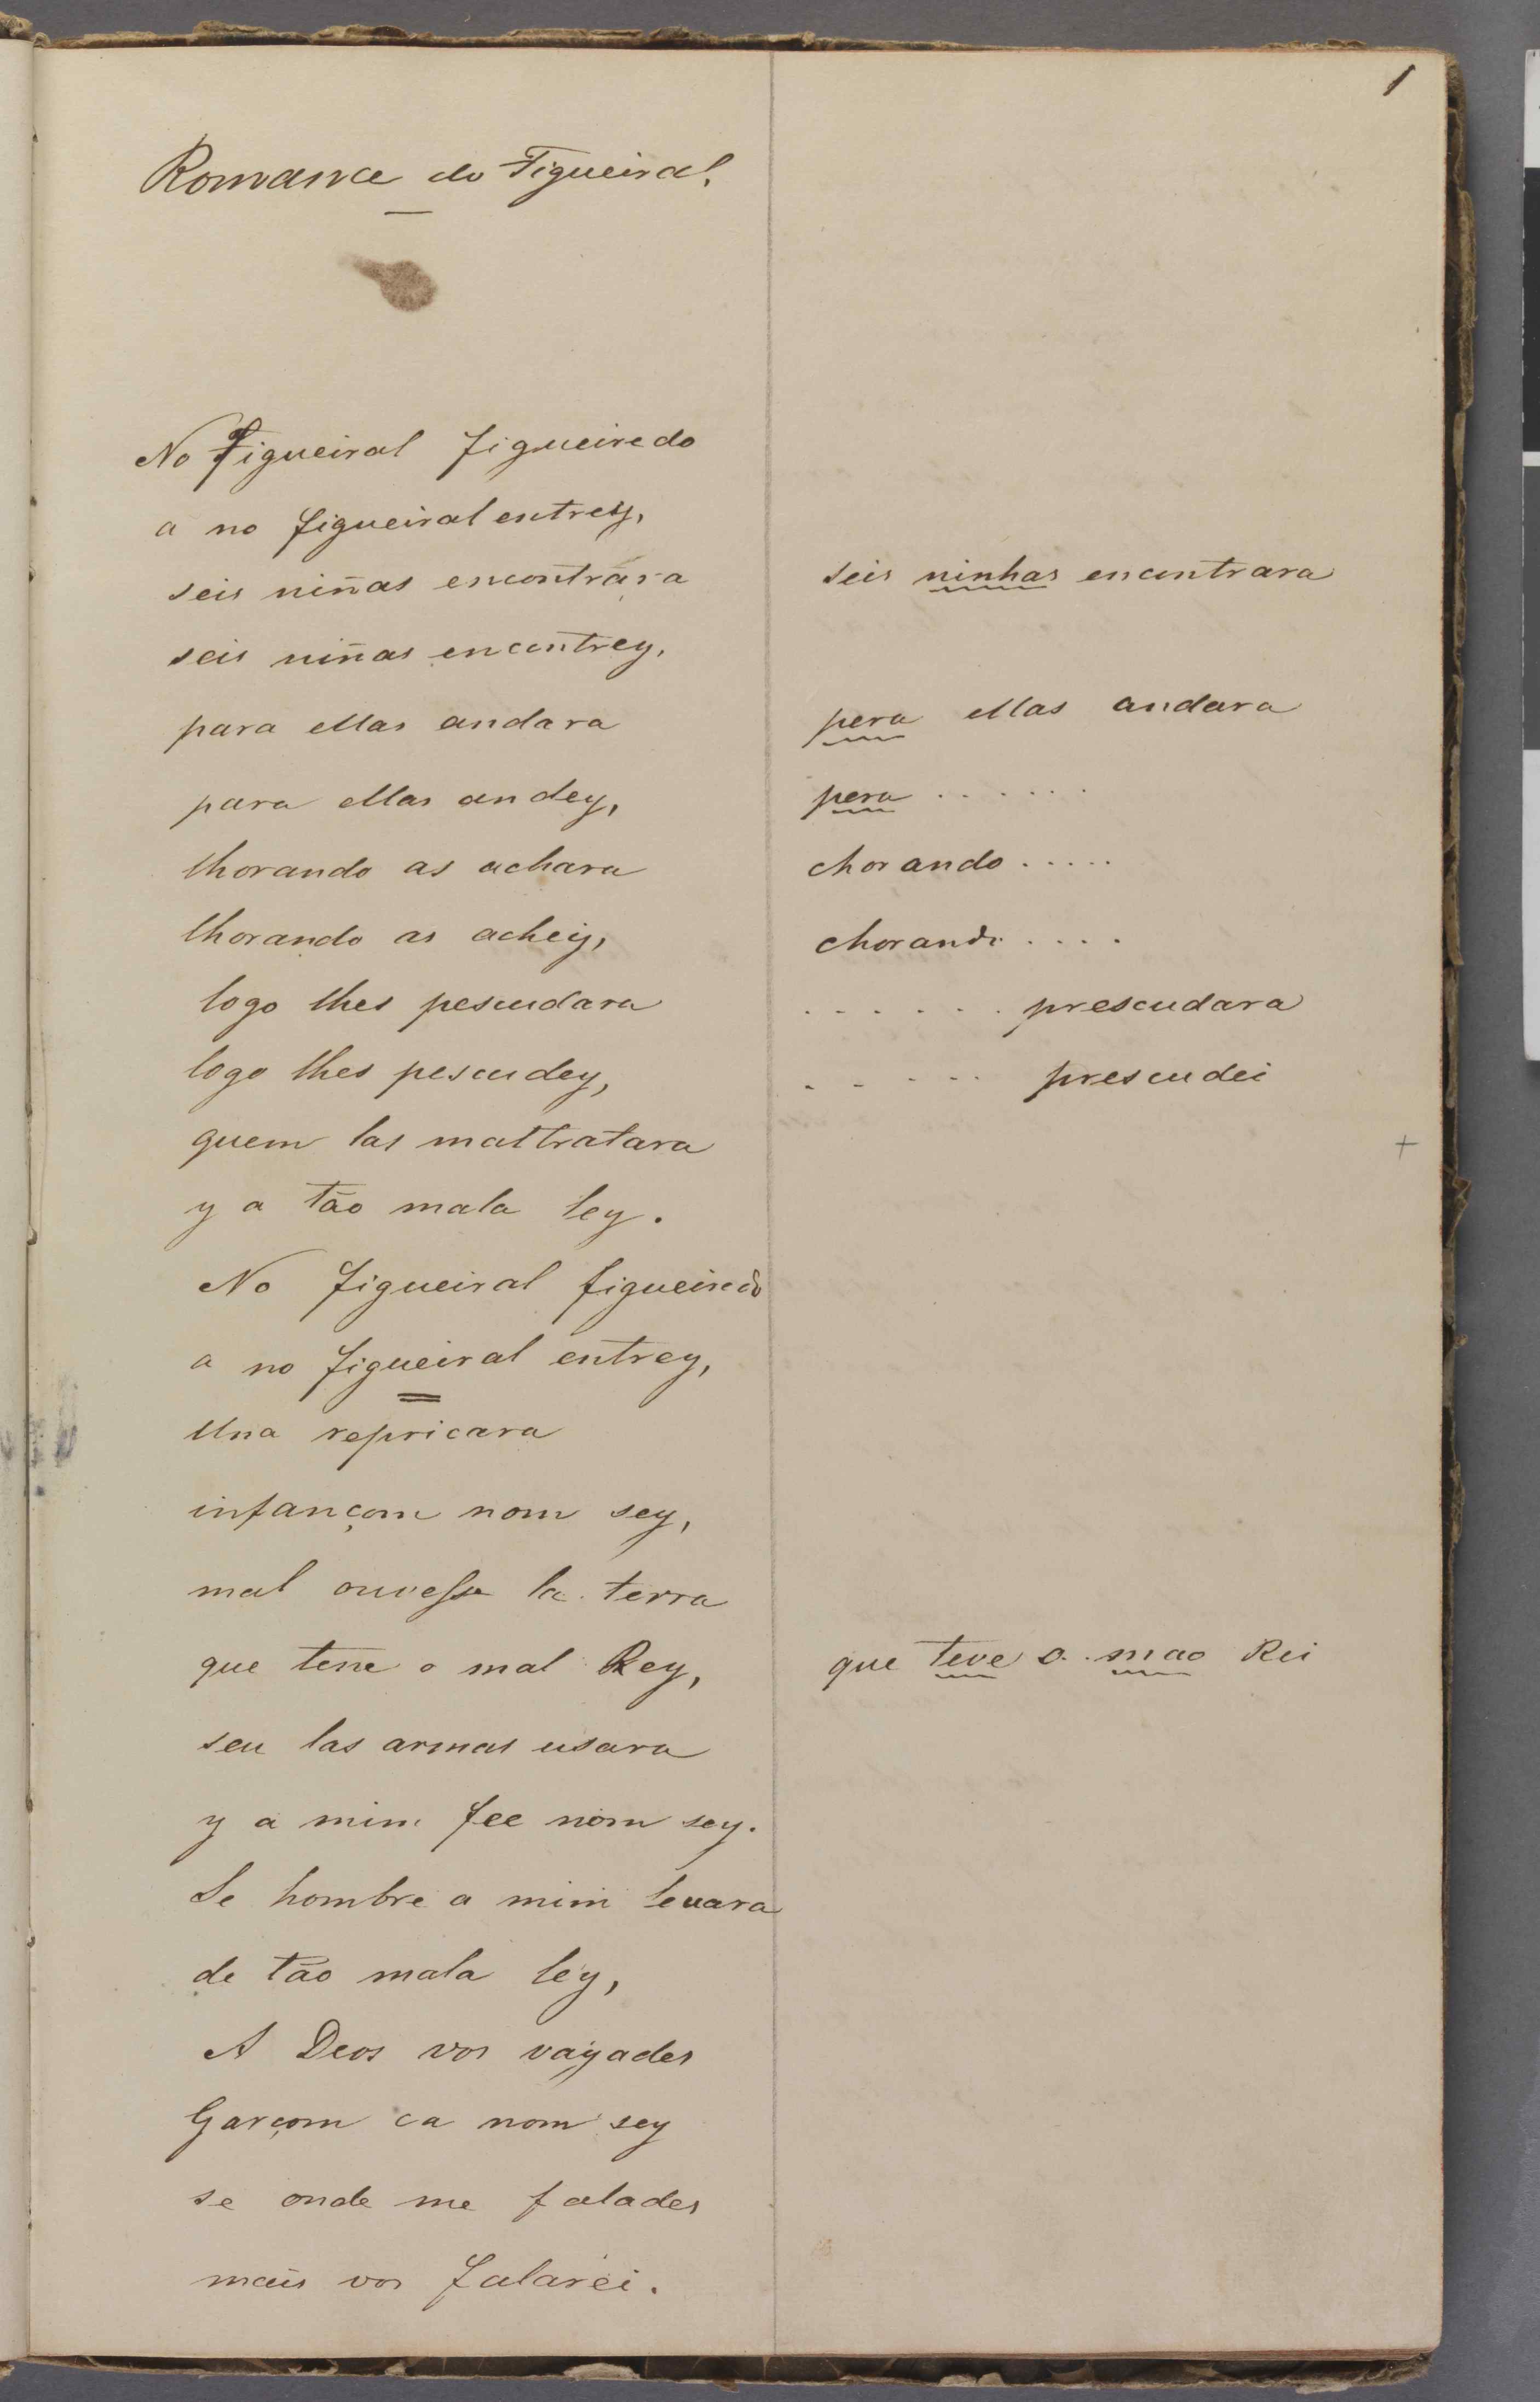 1
Romance do Figueiral.
No figueiral figueiredo
a no figueiral entrey,
seis niñas encontrara
seis ninhas encontrara
seis niñas encontrey,
para ellas andara
pera ellas andara
para ellas andey,
pera ......
lhorando as achara
chorando .....
lhorando as achey,
chorando ....
logo lhes pescudara
...... prescudara
logo lhes pescudey,
..... prescudei
quem las mattratara
+
y a tão mala ley.
No figueiral figueiredo
a no figueiral entrey,
Una repricara
infançom nom sey,
mal ouvesse la terra
que tene o mal Rey,
que teve o mao Rei
seu las armas usara
y a mim fee nom sey.
Se hombre a mim levara
de tão mala ley,
A Deos vos vayades
Garçom ca nom sey
se onde me falades
mais vos falarei.